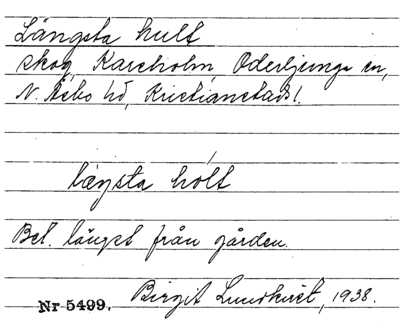 Längsta hult
skog, Karsholm, Oderljunga sn,
N. Åsbo hd, Kristianstads l.
længsta hólt
Bel. längst från gården.
Birgit Lundkvist, 1938.
Nr 5499.